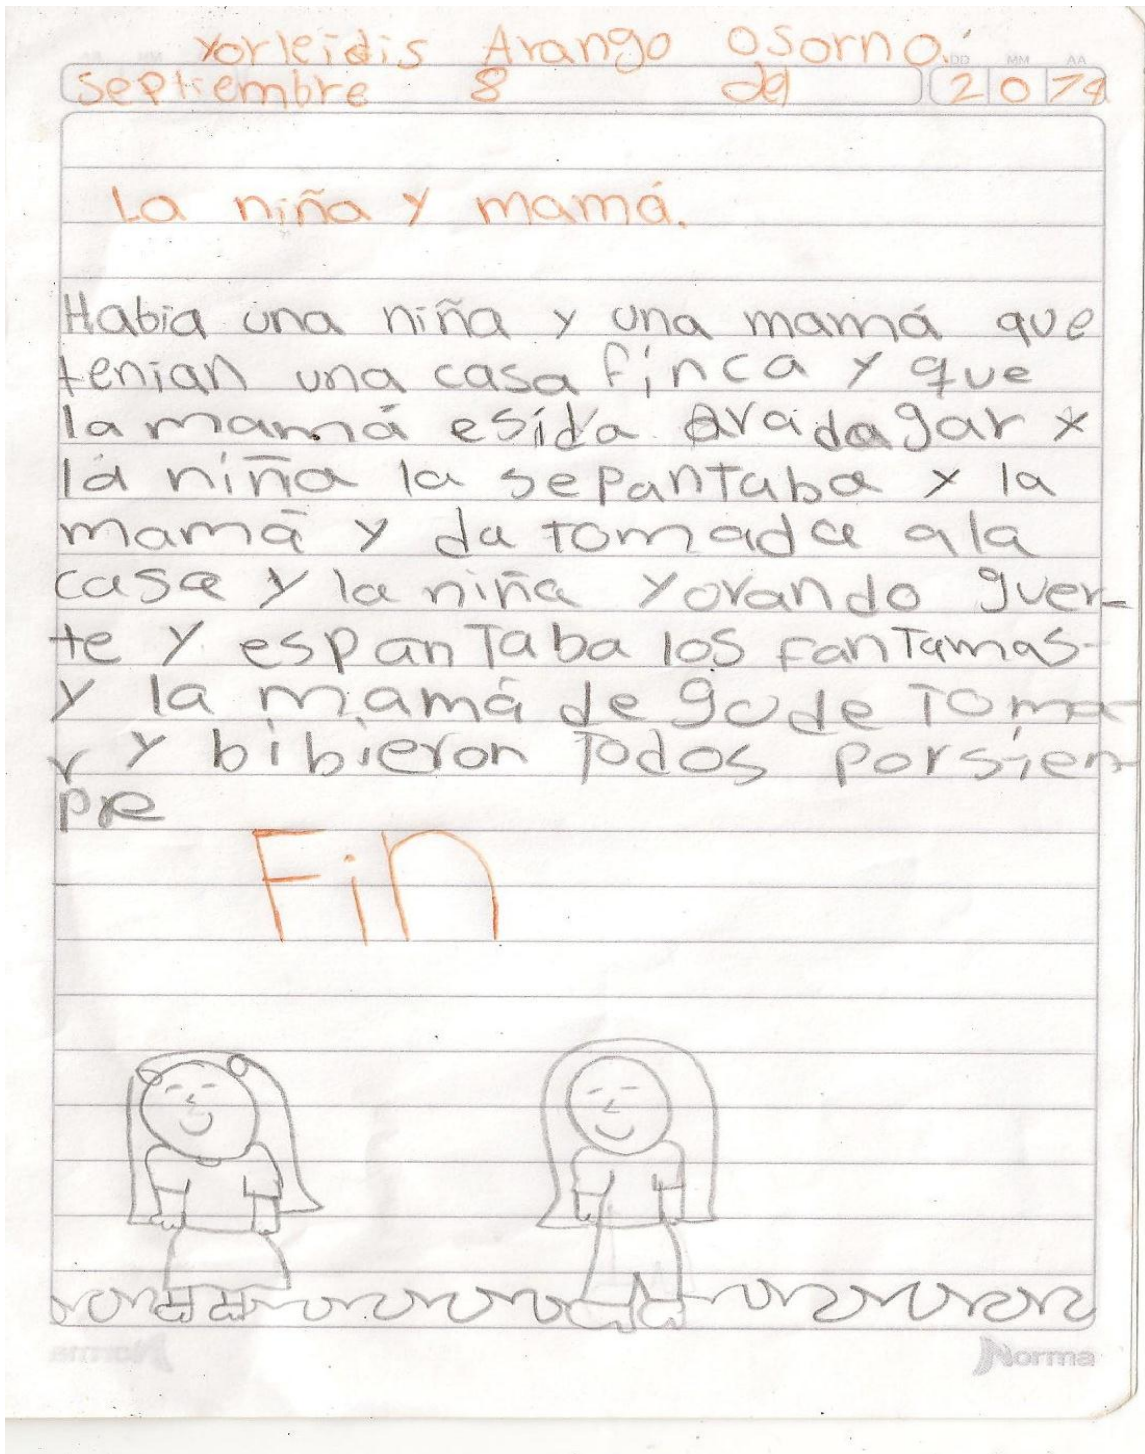 Yorleidis Arango Osorno.
DD MM AA
Septiembre 8 del 2014
La niña y mamá.
Habia una niña y una mamá que
tenian una casa finca y que
la mamá esída Avadagar y
la niña la sepantaba y la
mamá y da tomada ala
casa y la niña yorando guer-
te y espantaba los fantamas-
y la mamá de gode toma
r y bibieron todos porsien
pre
Fin
Norma